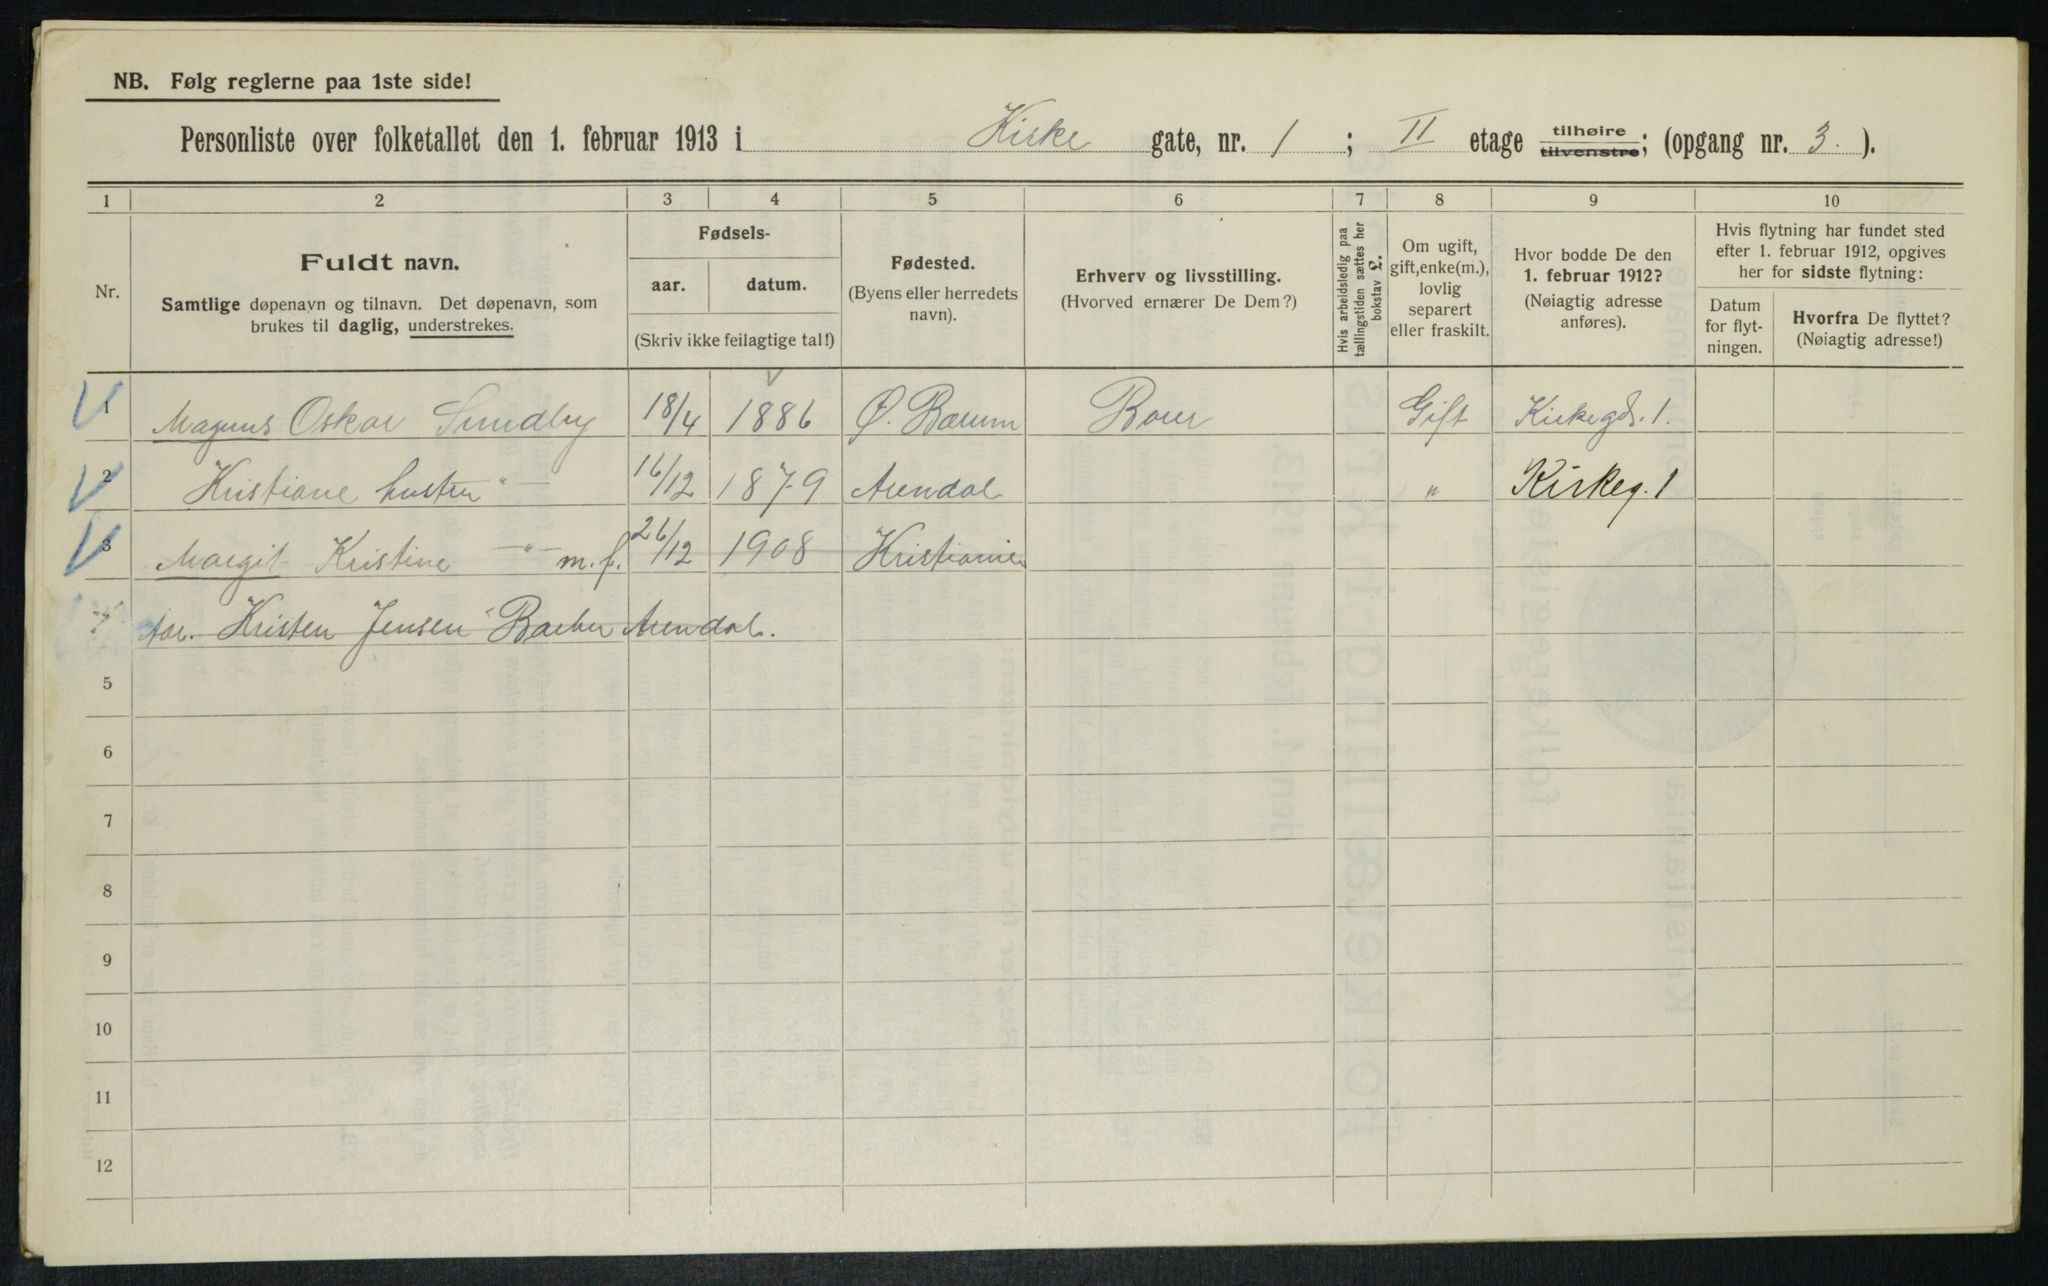 NB. Følg reglerne paa 1ste side!
Personliste over folketallet den 1. februar 1913 i Kirke gate, nr. 1 ; II etage tilhøire tilvenstre; (opgang nr. 3. ).
1 2 3 4 5 6 7 8 9 10
Nr.
Fuldt navn.
Samtlige døpenavn og tilnavn. Det døpenavn, som
brukes til daglig, understrekes.
Fødsels-
aar. datum.
(Skriv ikke feilagtige tal!)
Fødested.
(Byens eller herredets
navn).
Erhverv og livsstilling.
(Hvorved ernærer De Dem?)
Hvis arbeidsledig paa
tællingstiden sættes her
bokstav L.
Om ugift,
gift, enke(m.),
lovlig
separert
eller fraskilt.
Hvor bodde De den
1. februar 1912?
(Nøiagtig adresse
anføres).
Hvis flytning har fundet sted
efter 1. februar 1912, opgives
her for sidste flytning:
Datum
for flyt-
ningen.
Hvorfra De flyttet?
(Nøiagtig adresse!)
1 Magnus Oskar Sundby 18/4 1886 Ø. Bærum Borer Gift Kirkegd. 1.
2 Kristiane hustru -"- 16/12 1879 Arendal " Kirkeg. 1
3 Margit Kristine -"- m. f. 26/12 1908 Kristiania
Kristen Jensen Arendal.
5
6
7
8
9
10
11
12